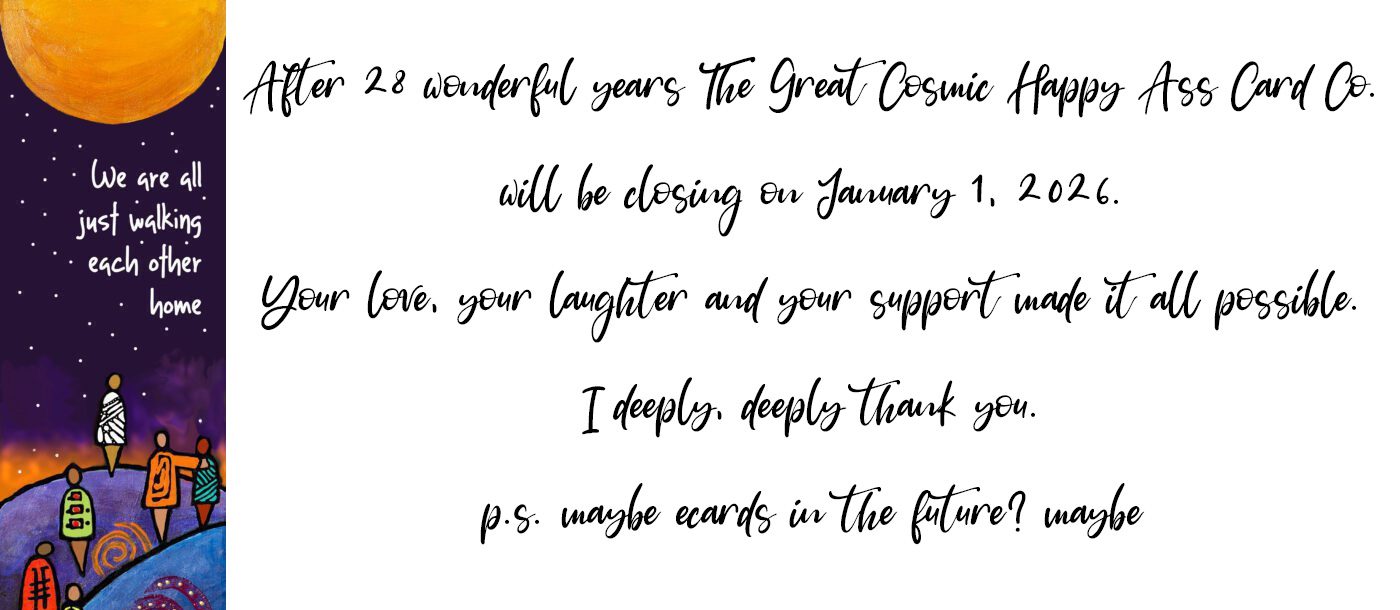 We are all
just walking
each other
home
After 28 wonderful years The Great Cosmic Happy Ass Card Co.
will be closing on January 1, 2026.
Your love, your laughter and your support made it all possible.
I deeply, deeply thank you.
p.s. maybe ecards in the future? maybe